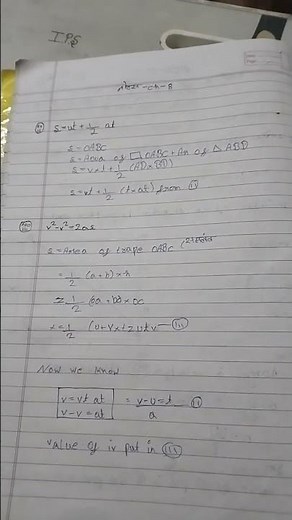 IPS
ch-8
(ii) s=ut+1/2 at
s=OABC
s=Area of □ OABC+An of △ ADD
s=v×t+1/2 (AD×BD)
s=ut+1/2 (t×at) from (ii)
v²-v²=2as
s=Area of trape OABC
=1/2 (a+b)×h
=1/2 oa+bd×oc
=1/2 (u+v×t —(iii)
Now we know
v=vt at =v-u=t (ii)
v-v=at a
value of iv put in (iii)